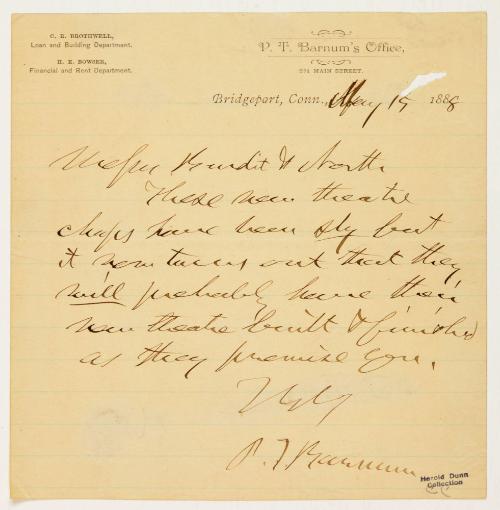 C. R. BROTHWELL,
Loan and Building Department.
H. E. BOWSER,
Financial and Rent Department.
P. T. Barnum's Office,
271 MAIN STREET.
Bridgeport, Conn., May 15 1888
Messrs & North
These new theatre
chaps have been sly but
it now turns out that they
will probably have their
new theatre built & finished
as they promise you.
P. T. Barnum
Harold Dunn
Collection